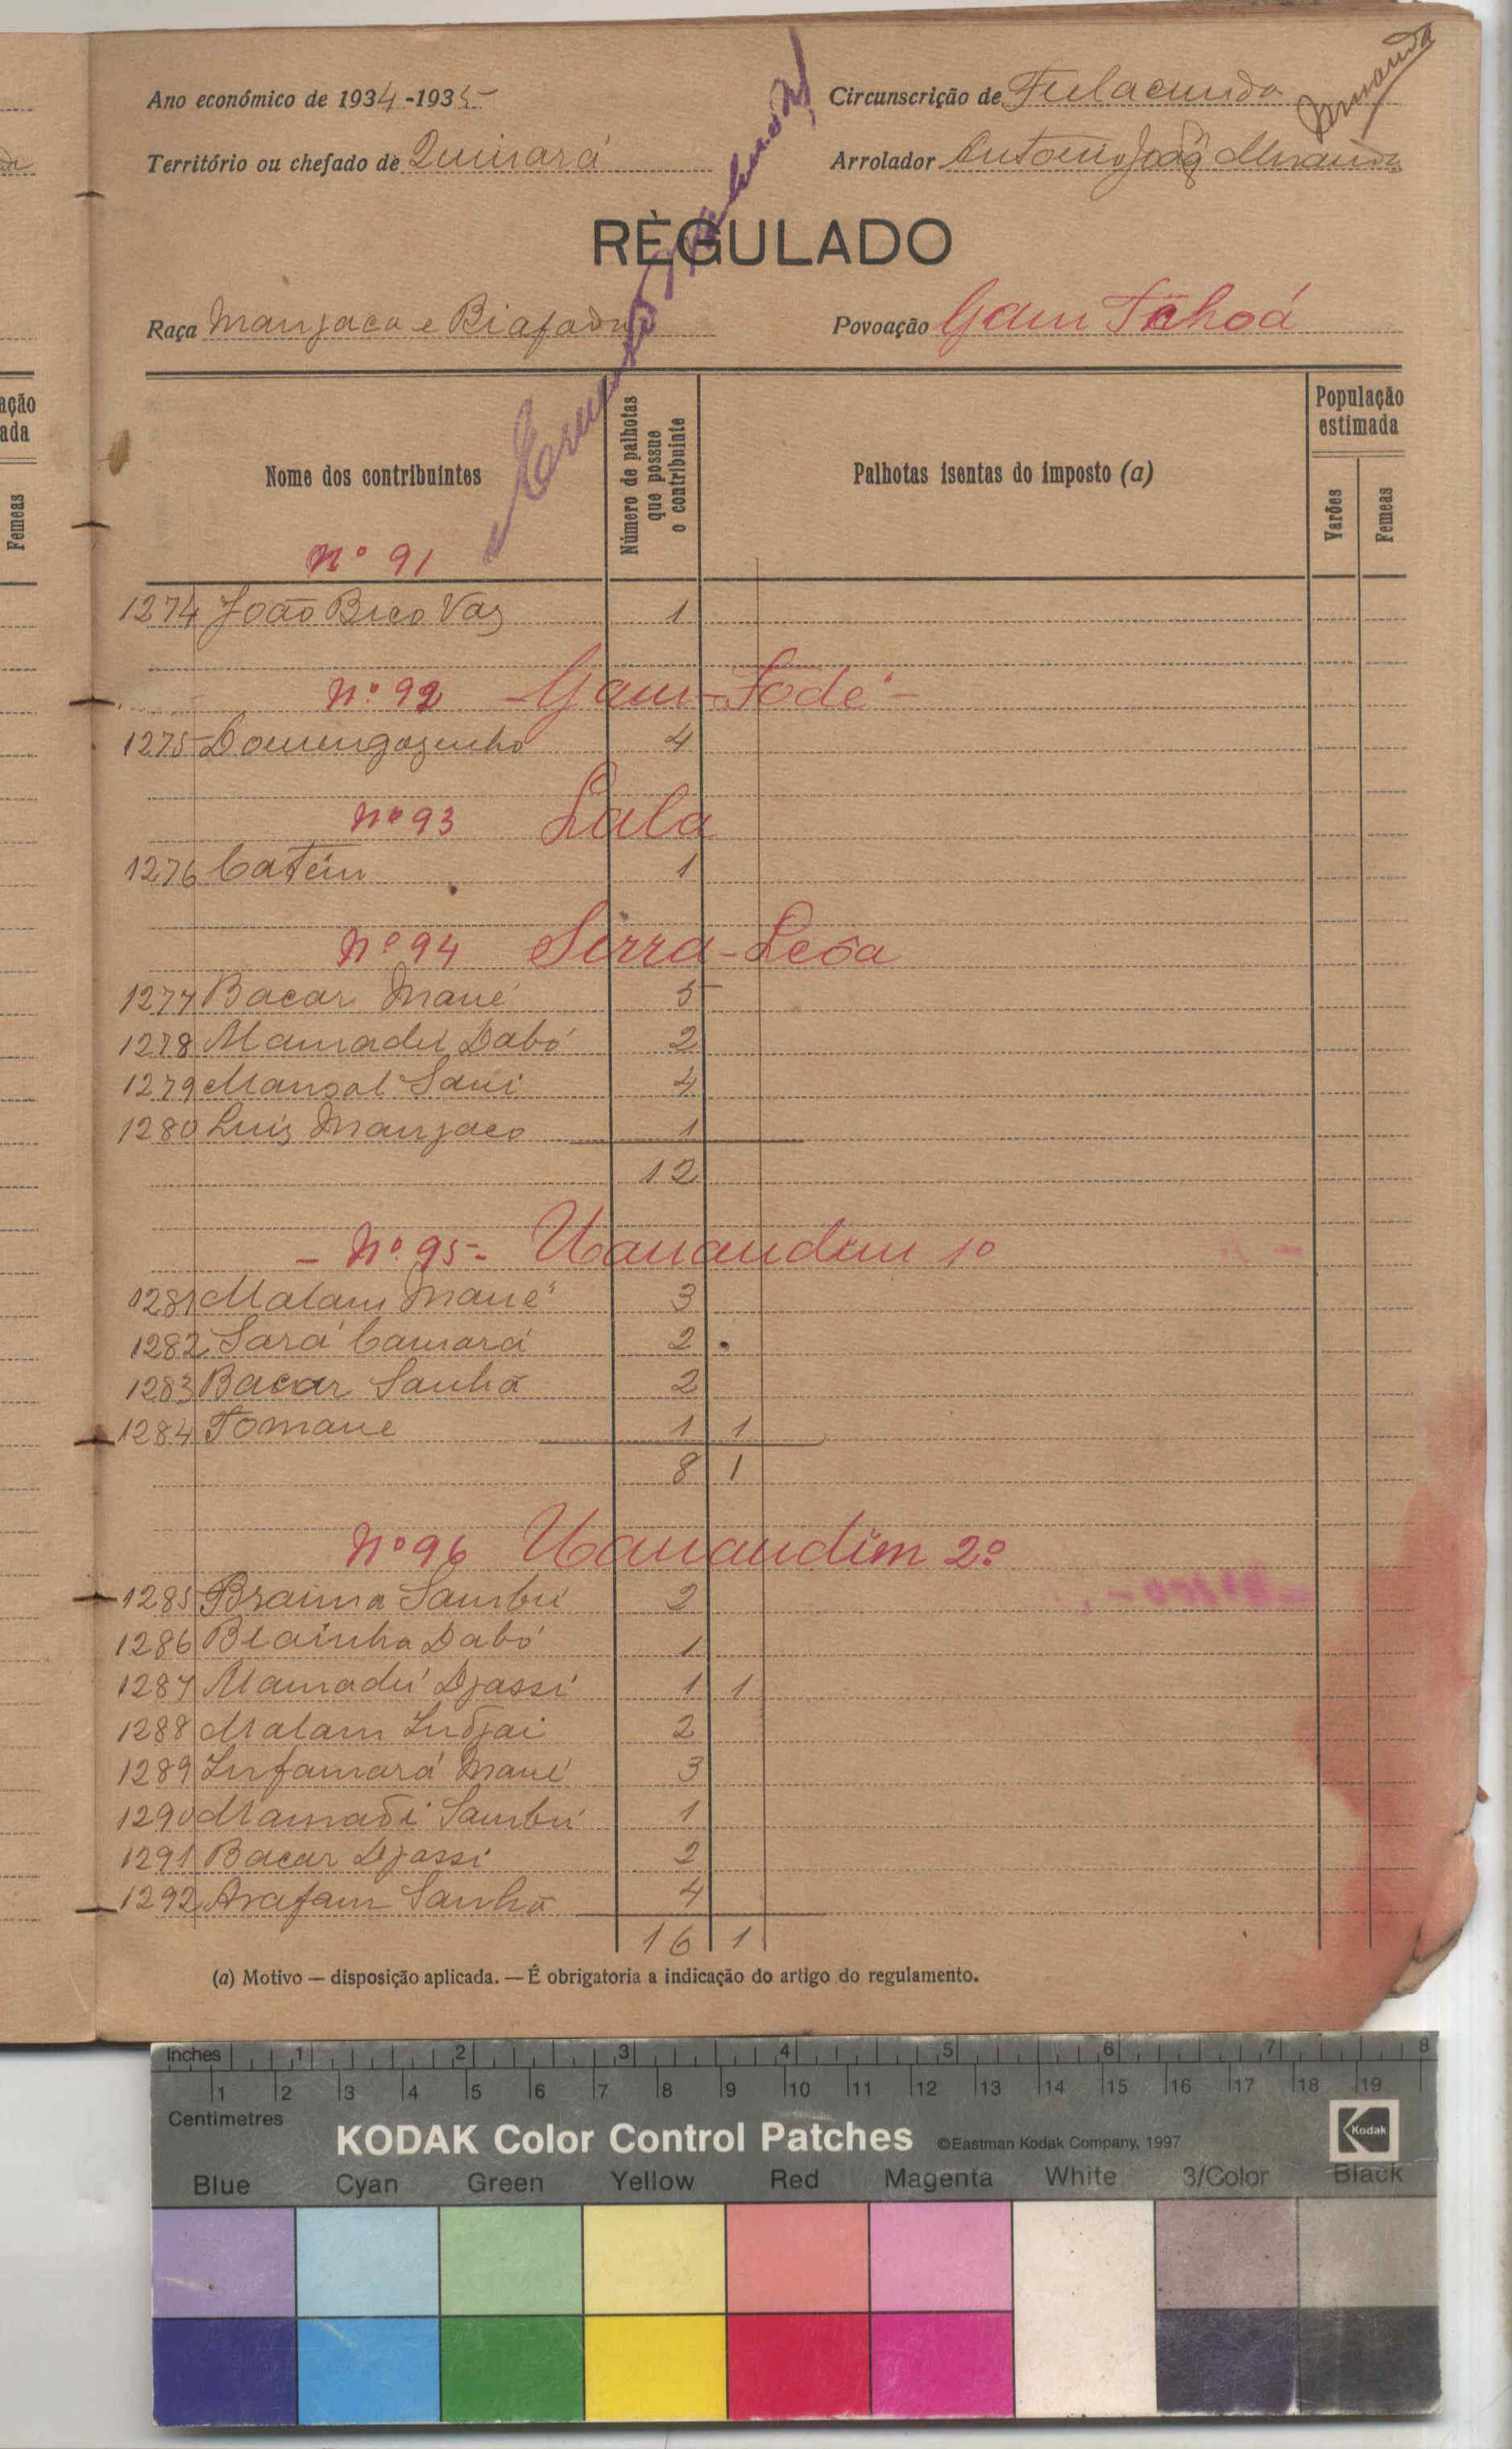 Ano económico de 1934-1935
Circunscrição de Fulacunda
Território ou chefado de Quinará
Arrolador Antonio João Miranda
Miranda
RÈGULADO
Raça Manjaca e Biafada
Povoação Gam Tchoá
ação
ada
Femeas
Nome dos contribuintes
Número de palhotas que possue o contribuinte
Palhotas isentas do imposto (a)
População estimada
Varões
Femeas
Nº 91
1274 João Bico Vaz 1
Nº 92 - Gam-Fodé -
1275 Domingozinho 4
Nº 93 Lala
1276 Catein 1
Nº 94 Serra-Leôa
1277 Bacar Mané 5
1278 Mamadú Dabó 2
1279 Mansal Sani 4
1280 Luiz Manjaco 1
12
- Nº 95 - Uanandim 1º
1281 Malam Mané 3
1282 Sará Camará 2
1283 Bacar Sanhá 2
1284 Tomane 1 1
8 1
Nº 96 Uanandim 2º
1285 Braima Sambú 2
1286 Blainha Dabó 1
1287 Mamadú Djassi 1 1
1288 Malam Indjai 2
1289 Infamará Mané 3
1290 Mamadi Sambú 1
1291 Bacar Djassi 2
1292 Arafam Sanhá 4
16 1
(a) Motivo — disposição aplicada. — É obrigatoria a indicação do artigo do regulamento.
Inches 1 2 3 4 5 6 7 8
1 2 3 4 5 6 7 8 9 10 11 12 13 14 15 16 17 18 19
Centimetres
KODAK Color Control Patches ©Eastman Kodak Company, 1997
Kodak
Blue Cyan Green Yellow Red Magenta White 3/Color Black